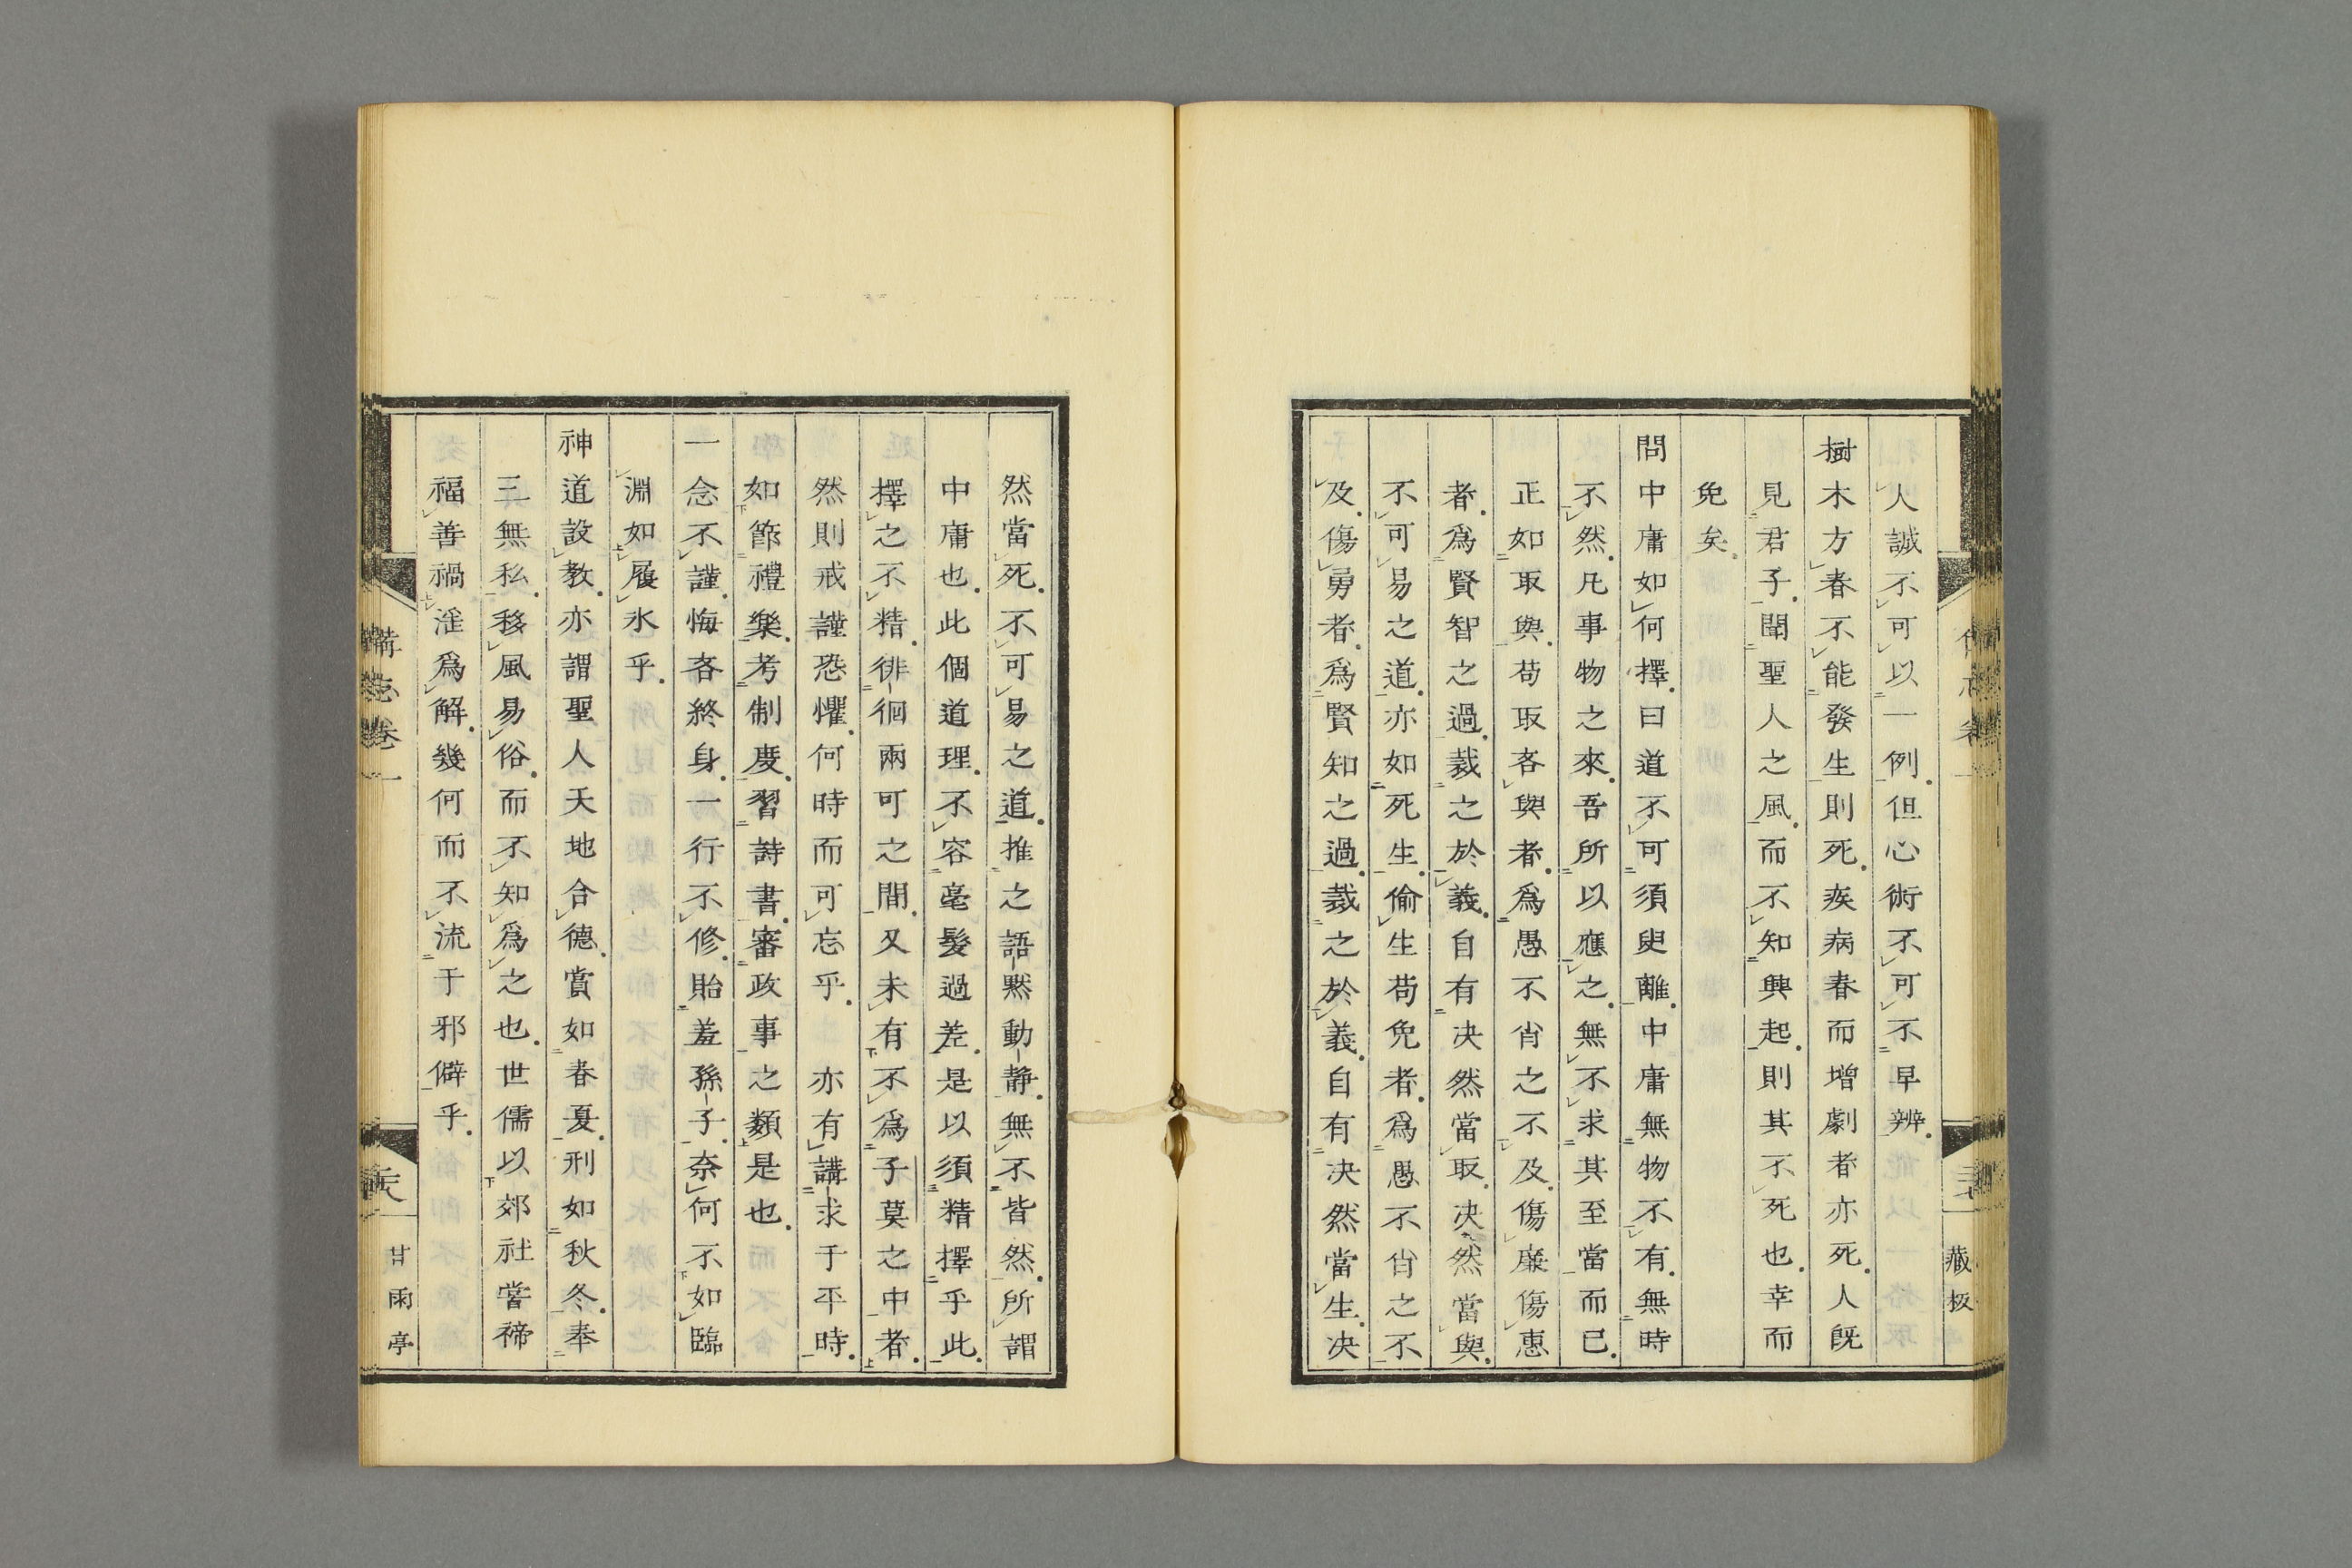 人誠不可以一例但心術不可不早辨
樹木方春不能發生則死疾病春而增劇者亦死人既
見君子聞聖人之風而不知興起則其不死也幸而
免矣
問中庸如何擇曰道不可須臾離中庸無物不有無時
不然凡事物之來吾所以應之無不求其至當而已
正如取與苟取吝與者爲愚不肖之不及傷廉傷惠
者爲賢智之過裁之於義自有决然當取决然當與
不可易之道亦如死生偷生苟免者爲愚不肖之不
及傷勇者爲賢知之過裁之於義自有决然當生决
藏板
然當死不可易之道推之語默動静無不皆然所謂
中庸也此個道理不容毫髮過差是以須精擇乎此
擇之不精徘徊兩可之間又未有不爲子莫之中者
然則戒謹恐懼何時而可忘乎亦有講求于平時
如節禮樂考制度習詩書審政事之類是也
一念不謹悔吝終身一行不修貽羞孫子奈何不如臨
淵如履氷乎
神道設教亦謂聖人天地合德賞如春夏刑如秋冬奉
三無私移風易俗而不知爲之也世儒以郊社嘗禘
福善禍淫爲解幾何而不流于邪僻乎
備忘卷一
甘雨亭